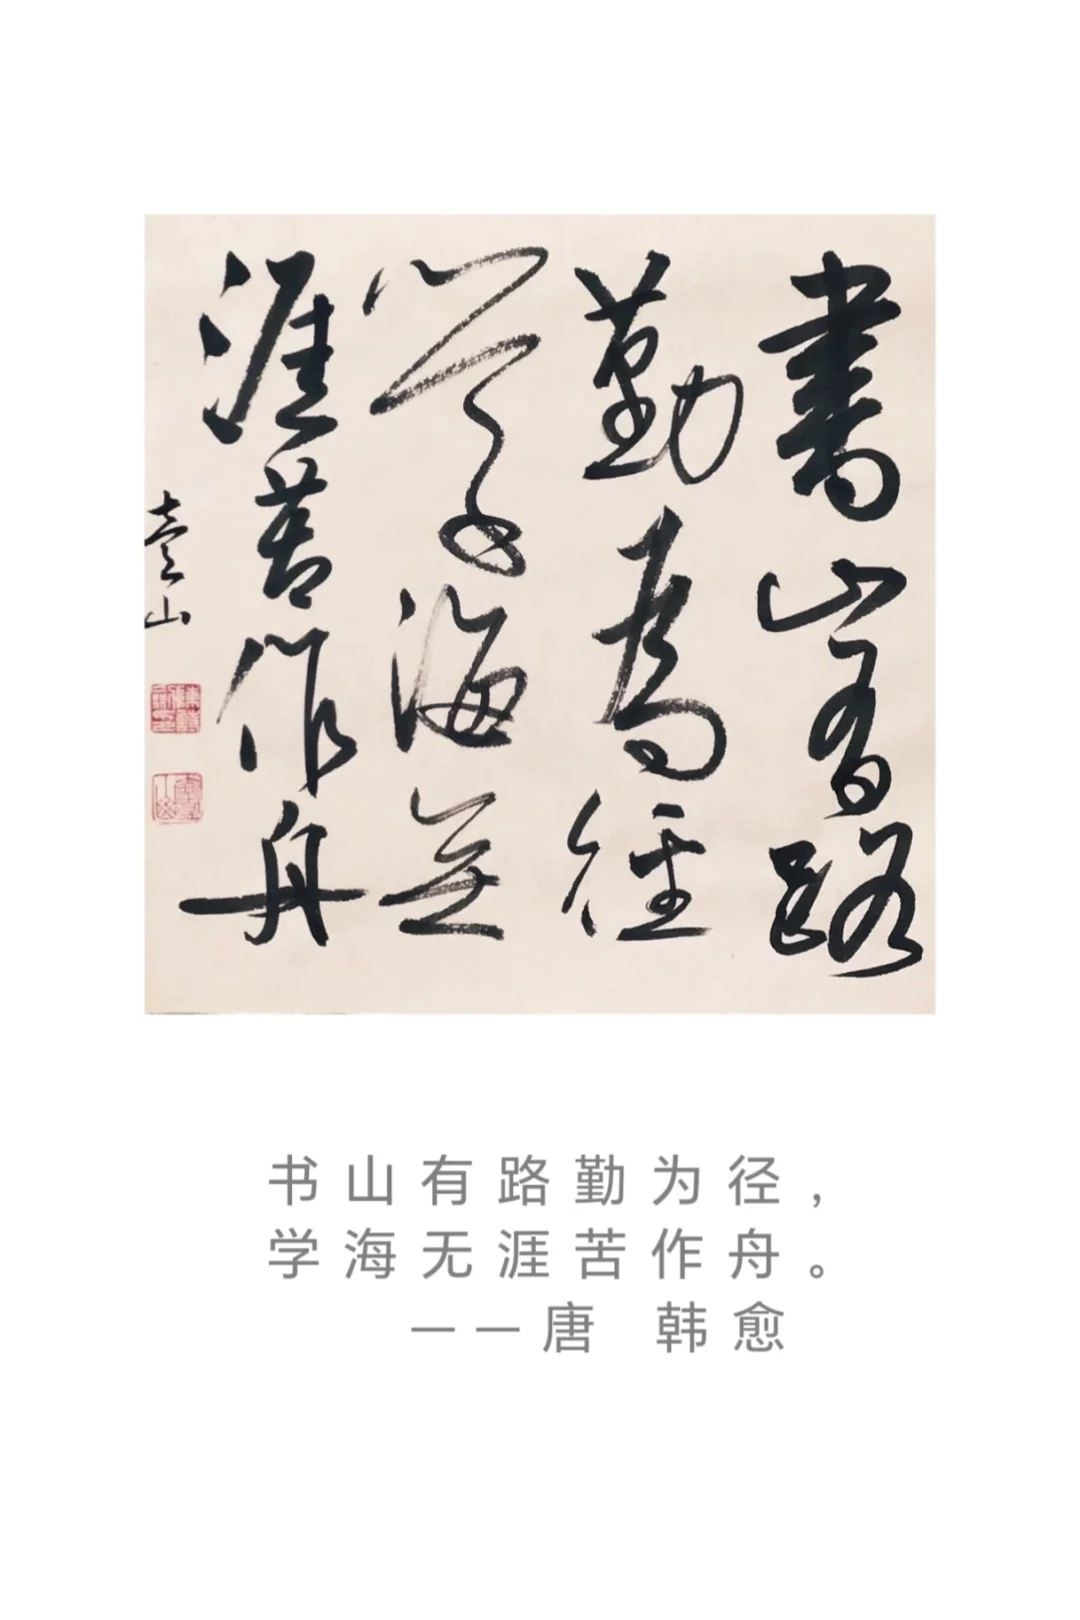 書山有路
勤為徑
學海無
涯苦作舟
壹山
书山有路勤为径，
学海无涯苦作舟。
——唐 韩愈